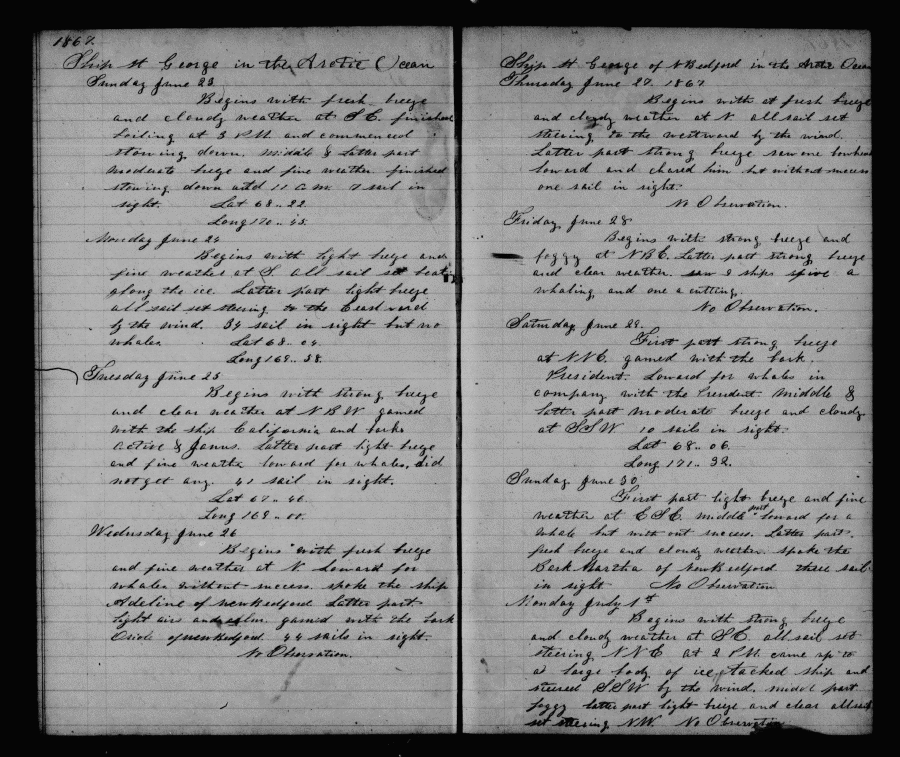 1867.
Ship St George in the Arctic Ocean
Sunday June 23
Begins with fresh breeze
and cloudy weather at SE. finished
boiling at 3 P.M. and commenced
stowing down. middle & Latter part
moderate breeze and fine weather finished
stowing down at 11 a.m. 7 sail in
sight. Lat 68.. 22
Long 170.. 45.
Monday June 24
Begins with light breeze and
fine weather at S all sail set beating
along the ice. Latter part light breeze
all sail set steering to the Eastward
by the wind. 39 sail in sight but no
whales. Lat 68.. 04.
Long 169.. 38.
Tuesday June 25
Begins with strong breeze
and clear weather at NBW gamed
with the ship California and barks
Active & Janus. Latter part light breeze
and fine weather lowared for whales, did
not get any. 41 sail in sight.
Lat 67.. 46
Long 169.. 00.
Wednesday June 26
Begins with fresh breeze
and fine weather at N Lowared for
whales without success. spoke the ship
Adeline of New Bedford Latter part
light airs and calm. gamed with the bark
Oriole of New Bedford. 44 sails in sight.
No Observation.
Ship St George of N Bedford in the Arctic Ocean
Thursday June 27. 1867
Begins with at fresh breeze
and cloudy weather at N all sail set
steering to the westward by the wind.
Latter part strong breeze saw one bowhead
lowared and chased him but without success
one sail in sight.
No Observation.
Friday June 28
Begins with strong breeze and
foggy at NBE. Latter part strong breeze
and clear weather. saw 2 ships a
whaling and one a cutting.
No Observation.
Saturday June 29.
First part strong breeze
at NNE gamed with the bark.
President. Lowared for whales in
company with the President. middle &
latter part moderate breeze and cloudy
at SSW 10 sails in sight.
Lat 68.. 06
Long 171.. 32.
Sunday June 30
First part light breeze and fine
weather at ESE. middle part lowared for a
whale but with out success. Latter part.
fresh breeze and cloudy weather. spoke the
Bark Martha of New Bedford three sails
in sight No Observation
Monday July 1st
Begins with strong breeze
and cloudy weather at SE. all sail set
steering NNE at 2 P.M. came up to
a large body of ice, tacked ship and
steered SSW by the wind. middle part
foggy latter part light breeze and clear all sail
set steering NW. No Observation